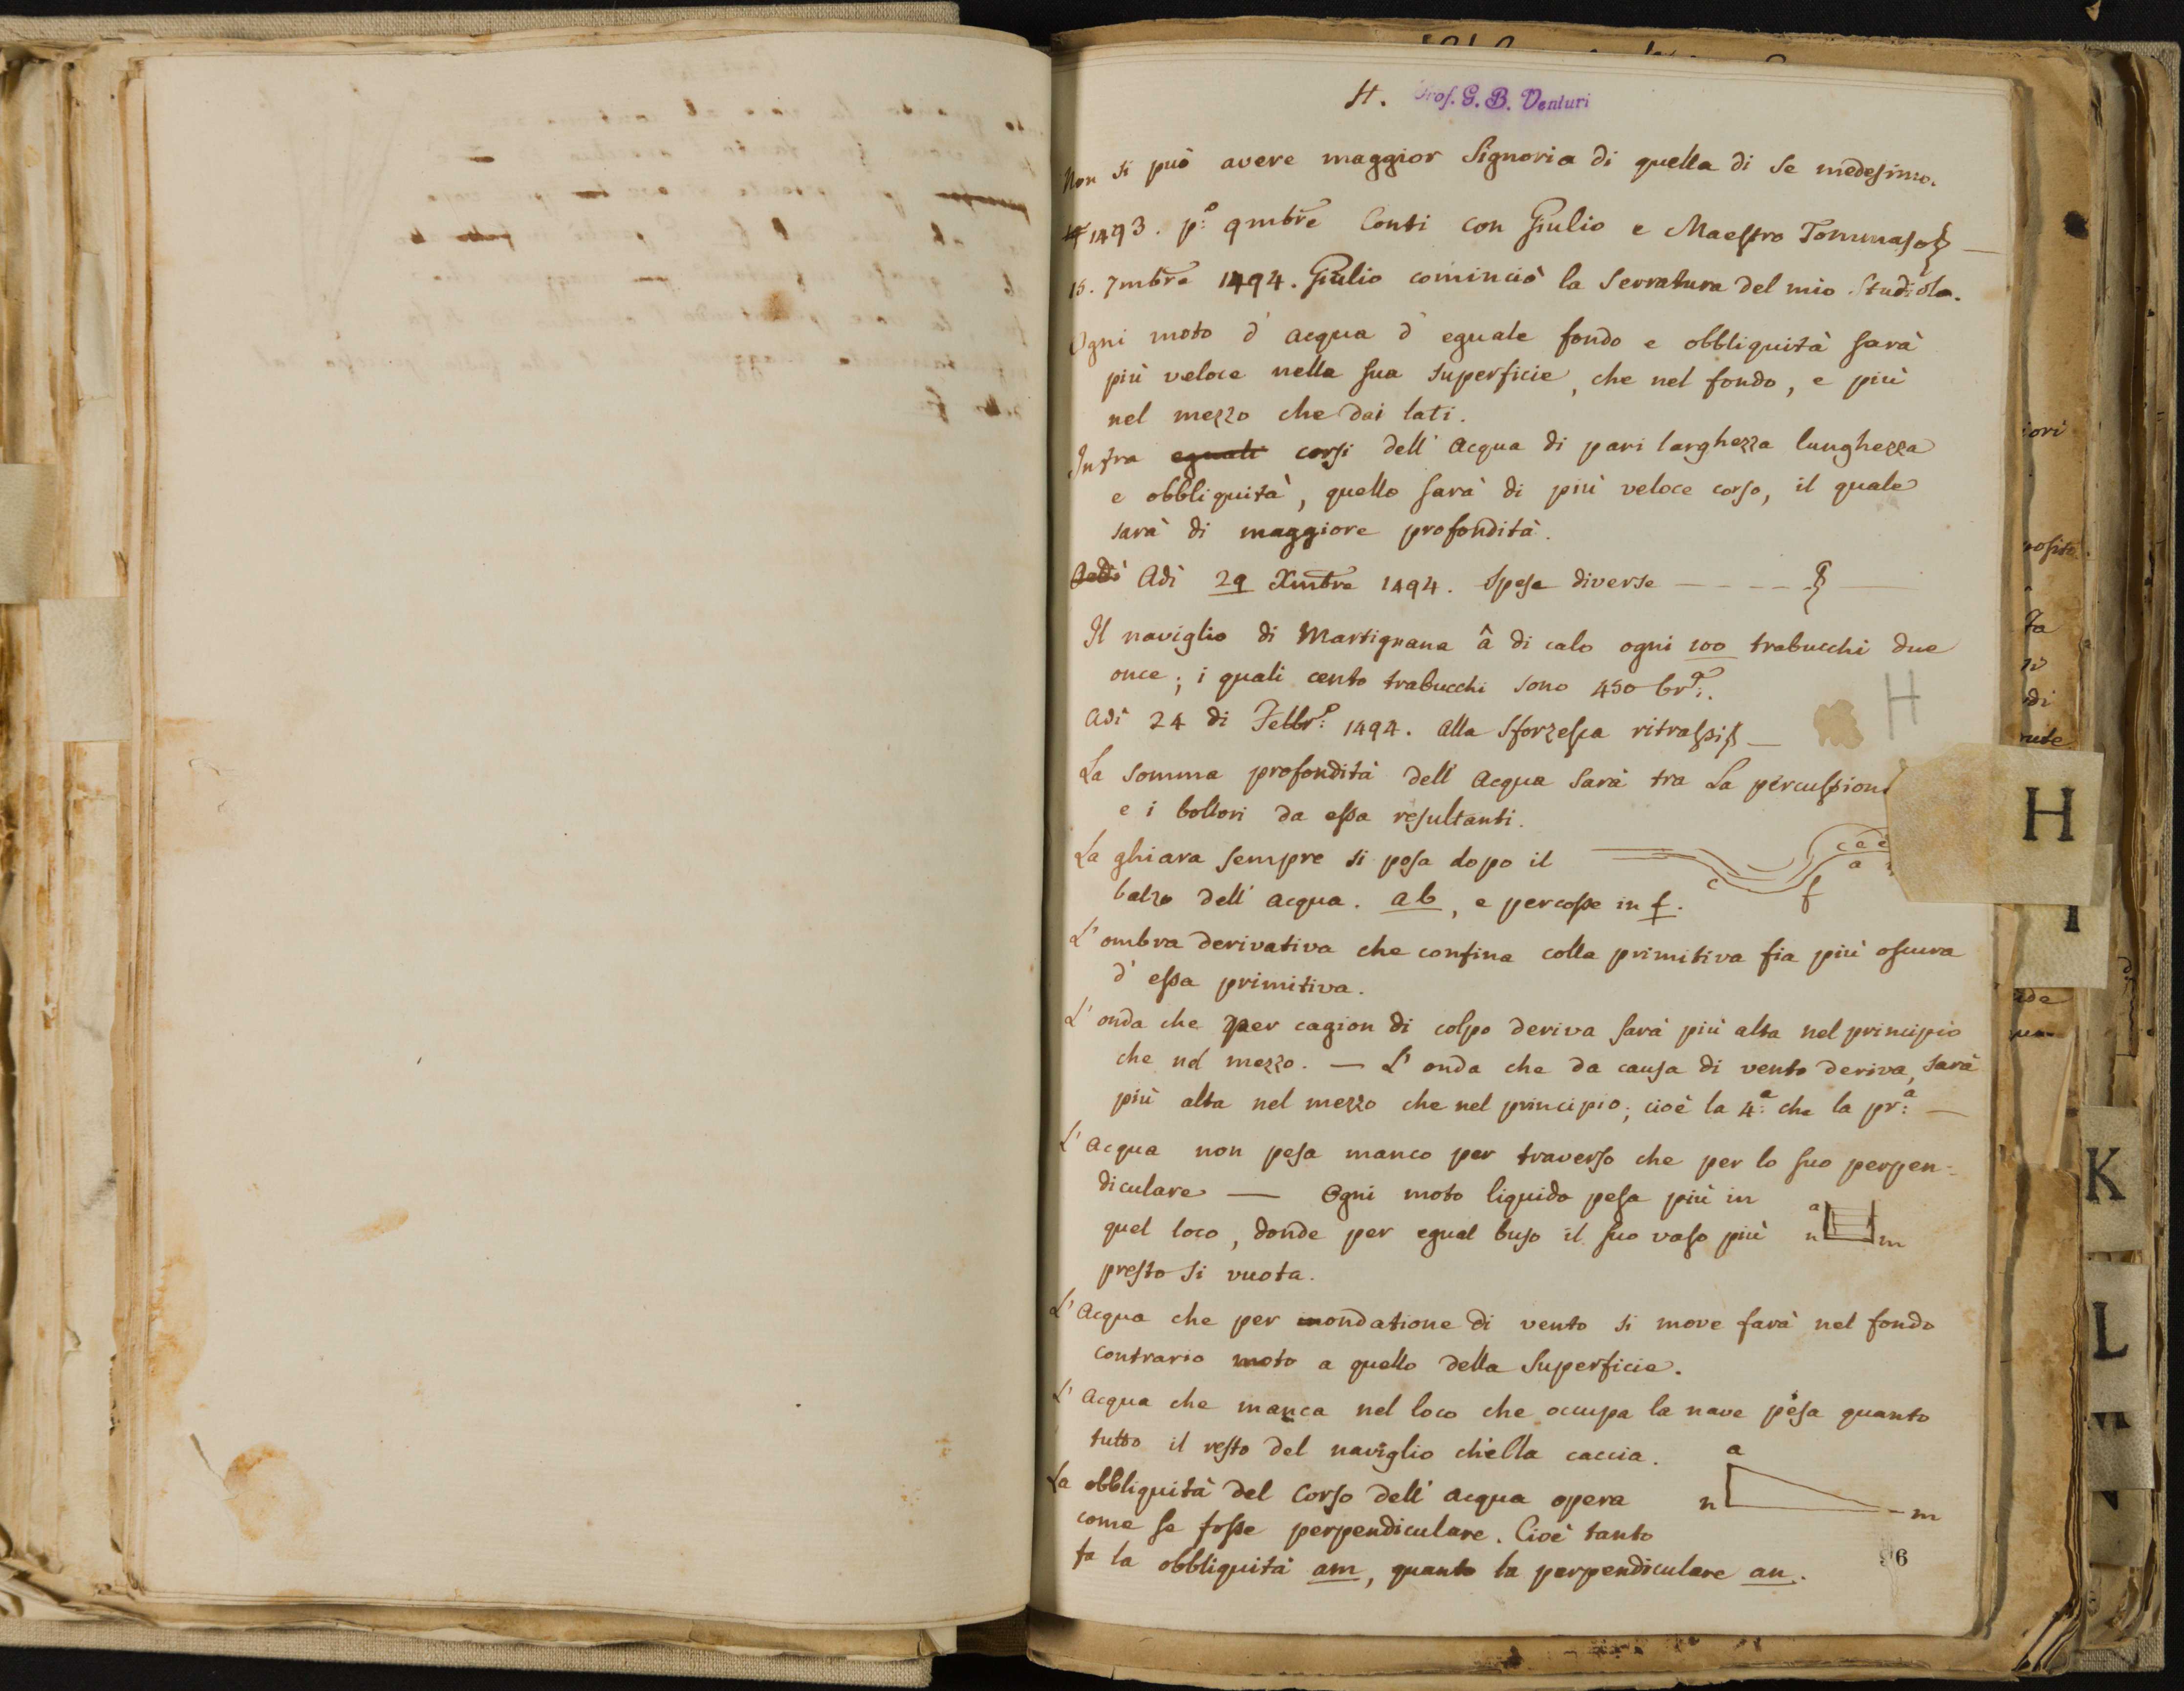 H. Prof. G. B. Venturi
Non si può avere maggior Signoria di quella di se medesimo.
1493. p:º 9mbre Conti con Giulio e Maestro Tommaso
15. 7mbre 1494. Giulio cominciò la Serratura del mio Studiolo.
Ogni moto d' acqua d' eguale fondo e obbliquità sarà
più veloce nella sua superficie, che nel fondo, e più
nel mezzo che dai lati.
Infra eguali corsi dell' acqua di pari larghezza lunghezza
e obbliquità, quello sarà di più veloce corso, il quale
sarà di maggiore profondità.
Adì 29 Xmbre 1494. Spese diverse
Il naviglio di Martignana â di calo ogni 100 trabucchi due
once; i quali cento trabucchi sono 450 br:ª.
Adì 24 di Febbr:º 1494. alla Sforzesca ritrassi
La somma profondità dell' acqua sarà tra la percussion
e i bollori da essa resultanti.
La ghiara sempre si posa dopo il
balzo dell' acqua. ab, e percosse in f.
c f a
L' ombra derivativa che confina colla primitiva fia più oscura
d' essa primitiva.
L' onda che per cagion di colpo deriva sarà più alta nel principio
che nel mezzo. — L' onda che da causa di vento deriva, sarà
più alta nel mezzo che nel principio; cioè la 4:ª che la pr:ª —
L' acqua non pesa manco per traverso che per lo suo perpen-
diculare — Ogni moto liquido pesa più in
quel loco, donde per egual buso il suo vaso più
a n m
presto si vuota.
L' acqua che per inondatione di vento si move farà nel fondo
contrario moto a quello della Superficie.
L' acqua che manca nel loco che occupa la nave pesa quanto
tutto il resto del naviglio ch'ella caccia.
La obbliquità del corso dell' acqua opera
a n m
come se fosse perpendiculare. Cioè tanto
fa la obbliquità am, quanto la perpendiculare an.
96
H
H
K
L